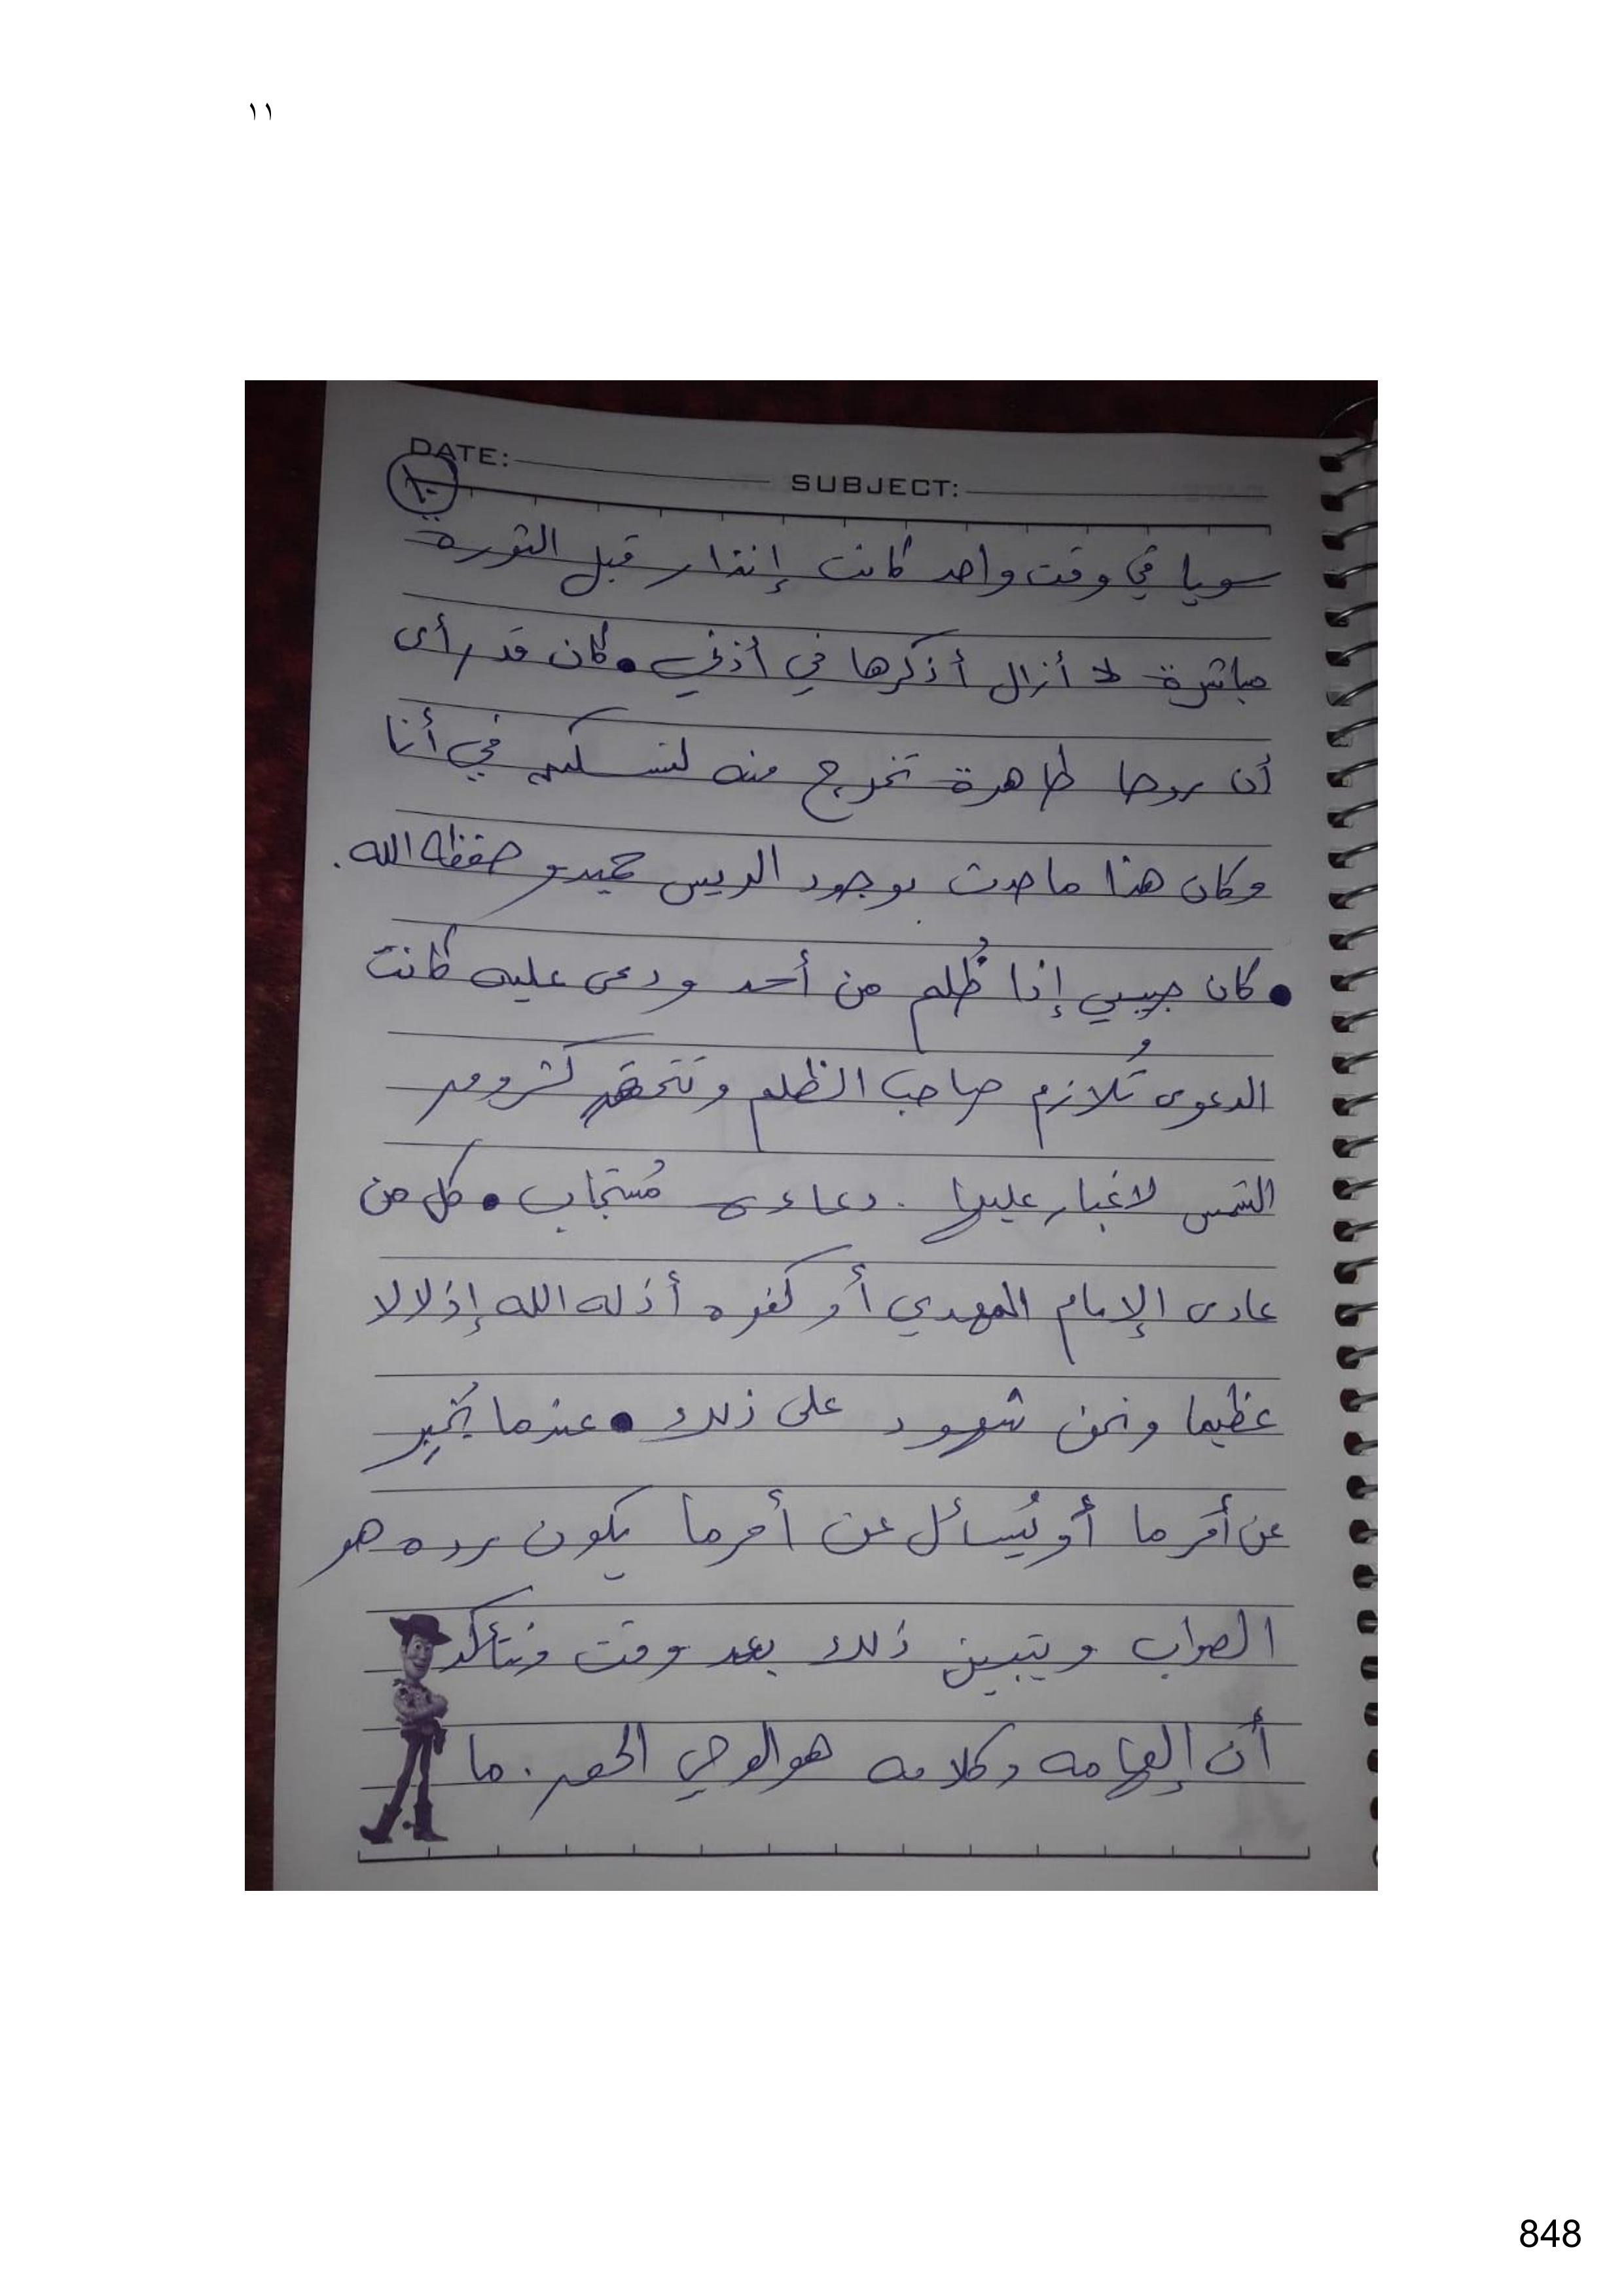 ١١
DATE: SUBJECT:
١٠
سويا في وقت واحد كانت إنذار قبل الثورة
مباشرة لا أزال أذكرها في أذني • كان قد رأى
أن روحا طاهرة تخرج منه لتسكن في أنا
وكان هذا ما حدث بوجود الريس حميدو حفظه الله.
• كان حبيبي إذا ظُلم من أحد ودعى عليه كانت
الدعوى تُلازم صاحب الظلم وتتحقق كشروق
الشمس لا غبار عليها . دعاءه مُستجاب • كل من
عادى الإمام المهدي أو كفره أذله الله إذلالا
عظيما ونحن شهود على ذلك • عندما يُخبر
عن أمر ما أو يُسائل عن أمر ما يكون رده هو
الصواب ويتبين ذلك بعد وقت ونتأكد
أن إلهامه وكلامه هو الوحي الحق . ما
848